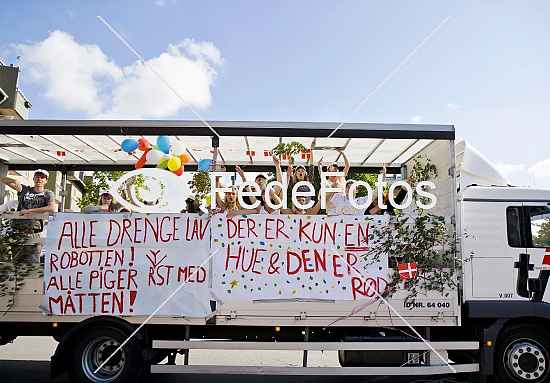 FedeFotos
ALLE DRENGE LAV
ROBOTTEN!
ALLE PIGER RST MED
MÅTTEN!
DER ER KUN EN
HUE & DEN ER
RØD
ID NR. 64 040
V 007